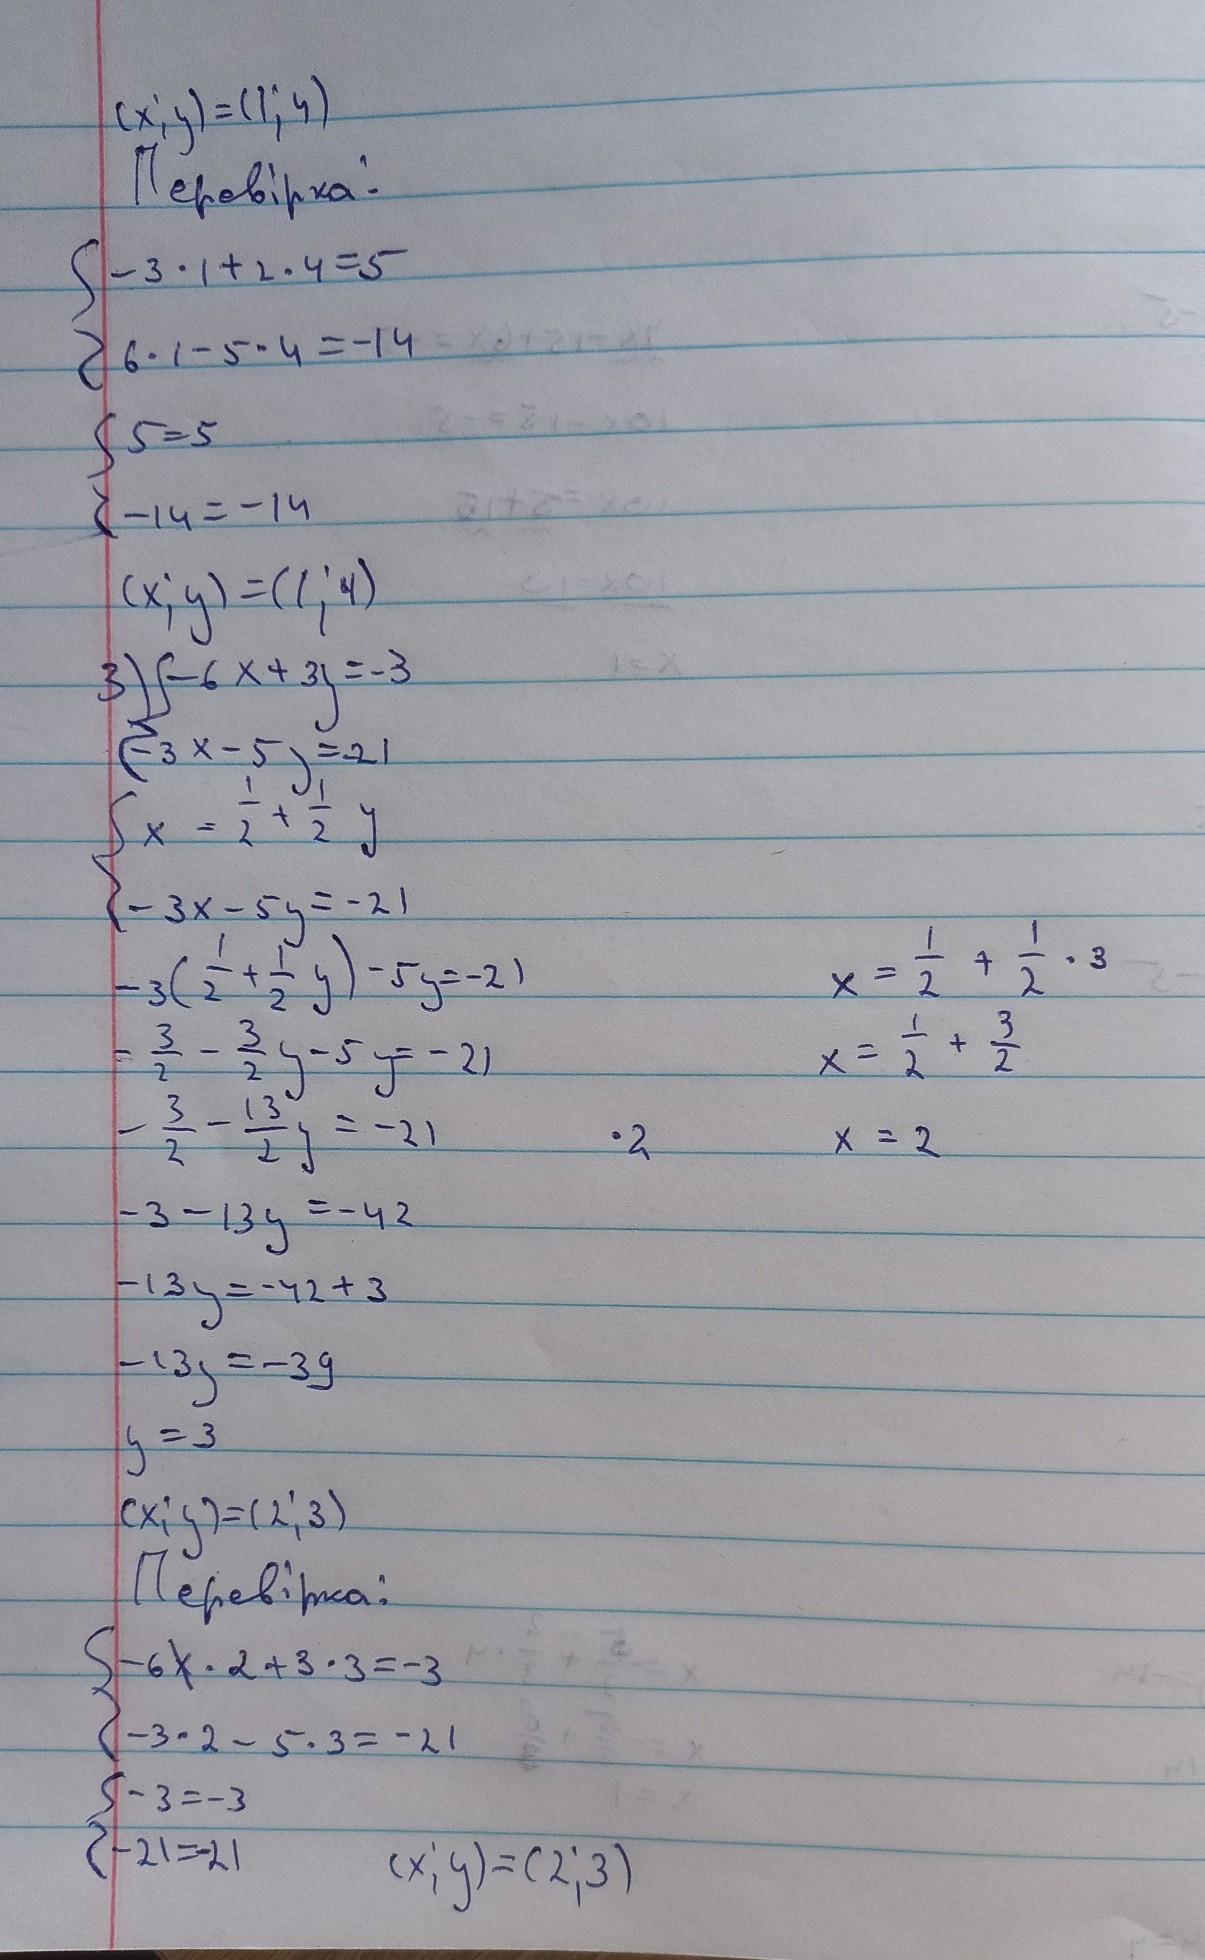 (x;y)=(1;4)
Перевірка:
{-3·1+2·4=5
6·1-5·4=-14
{5=5
-14=-14
(x;y)=(1;4)
3){-6x+3y=-3
-3x-5y=-21
{x = 1/2 + 1/2 y
-3x-5y=-21
-3(1/2+1/2 y)-5y=-21
-3/2-3/2 y-5y=-21
-3/2-13/2 y=-21 ·2
-3-13y=-42
-13y=-42+3
-13y=-39
y=3
x=1/2+1/2·3
x=1/2+3/2
x=2
(x;y)=(2;3)
Перевірка:
{-6·2+3·3=-3
-3·2-5·3=-21
{-3=-3
-21=-21
(x;y)=(2;3)